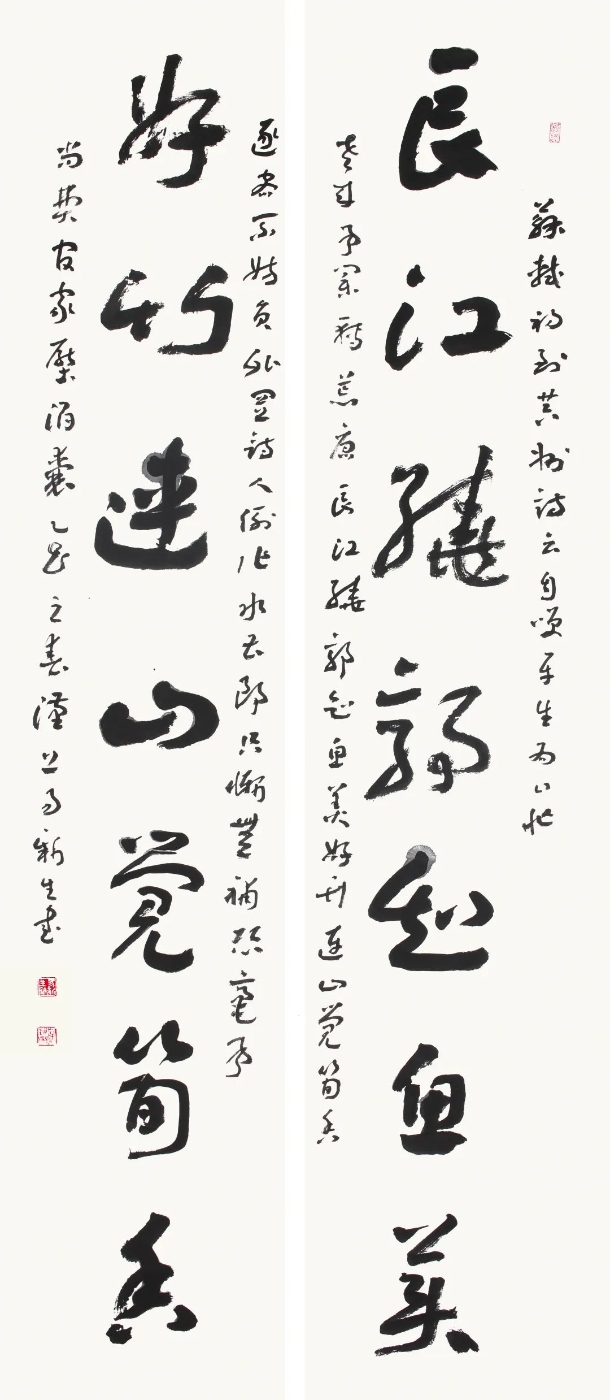 蘇軾初到黄州詩云自咲平生為口忙
長江繞郭知魚美
老來事業轉荒唐長江繞郭知魚美好竹連山覺筍香
逐客不妨員外置詩人例作水曹郎只慚無補絲毫事
好竹連山覺筍香
尚費官家壓酒囊乙之春漢上新生書